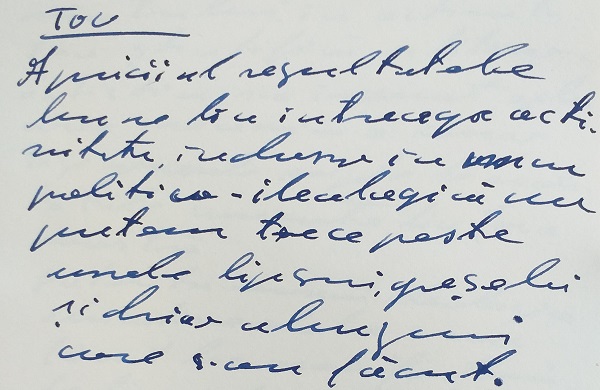 Tov
Apreciind rezultatele
bune din întreaga acti-
vitate, inclusiv în munca
politico-ideologică nu
putem trece peste
unele lipsuri, greșeli
și chiar abuzuri
care s-au făcut.